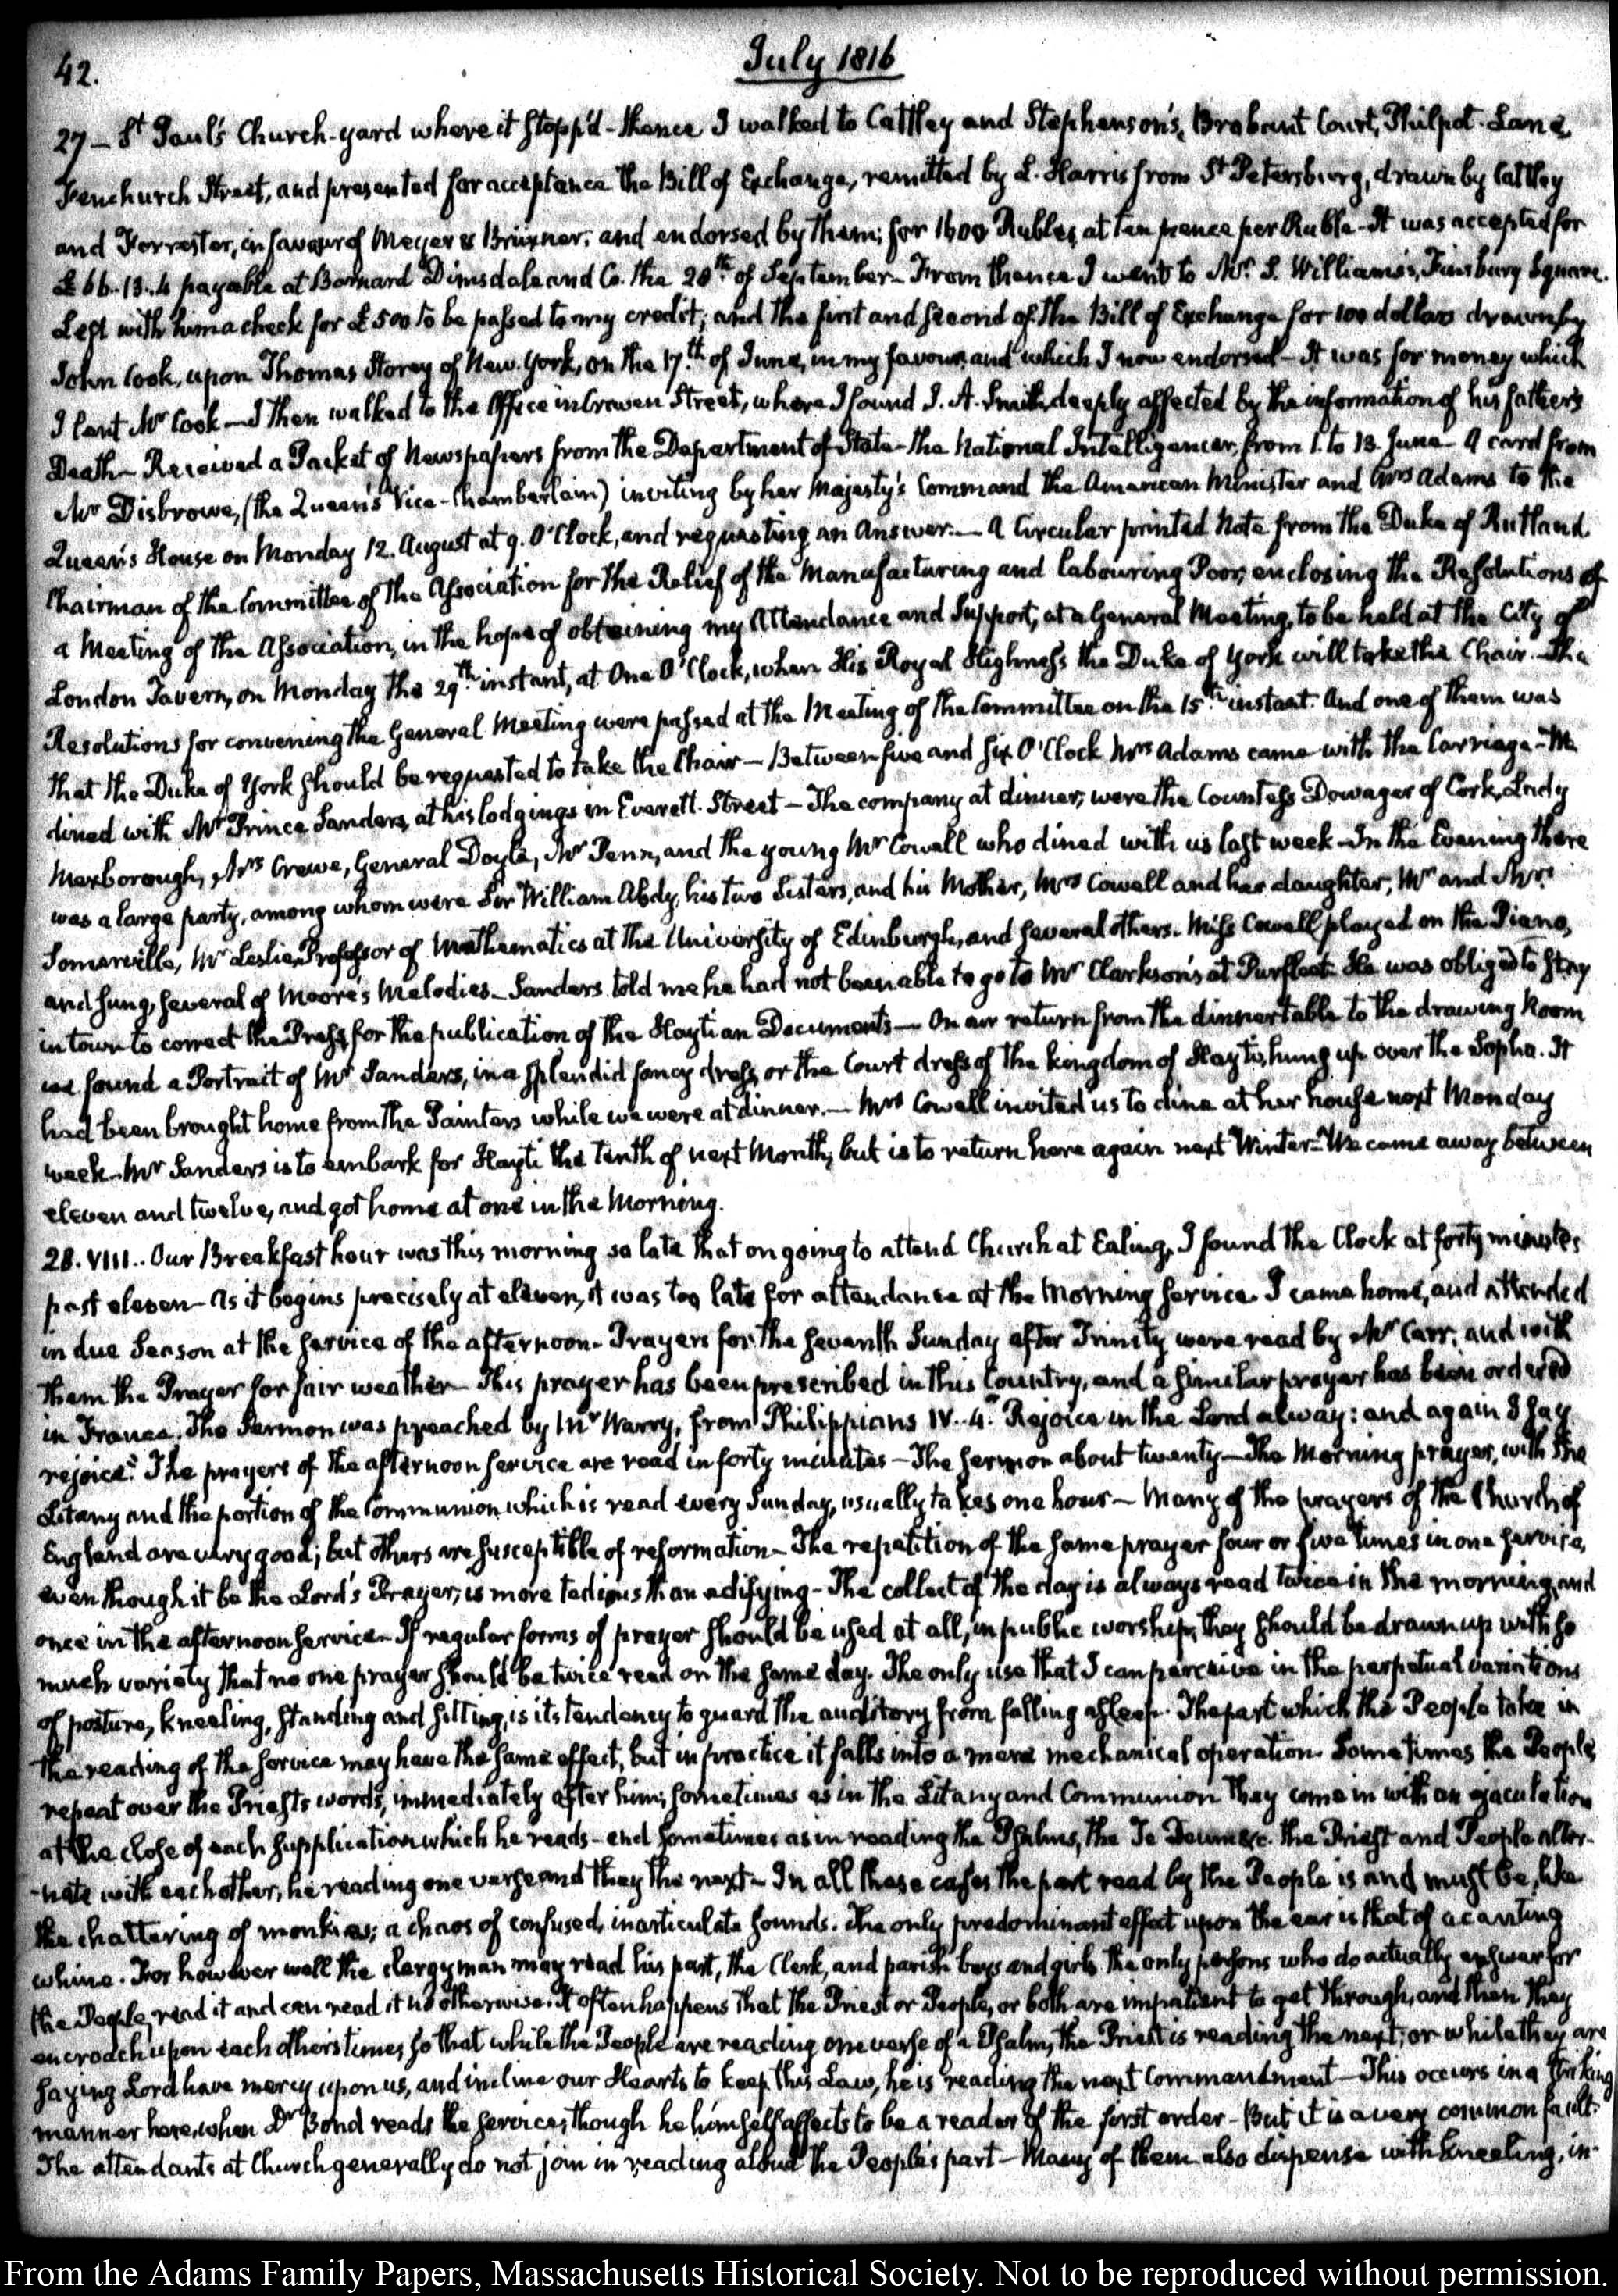 42.
July 1816
27 – St. Paul's Church-yard where it stopp'd – thence I walked to Cattley and Stephenson's, Brabant Court, Philpot-Lane
Fenchurch Street, and presented for acceptance the Bill of Exchange, remitted by L. Harris from St. Petersburg, drawn by Cattley
and Forrester, in favour of Meyer & Brüxner, and endorsed by them; for 1600 Rubles at ten pence per Ruble – It was accepted for
£66..13..4 payable at Barnard Dimsdale and Co. the 20th. of September – From thence I went to Mr. S. Williams's, Finsbury Square.
Left with him a check for £500 to be passed to my credit; and the first and second of the Bill of Exchange for 100 dollars drawn by
John Cook, upon Thomas Storey of New-York, on the 17th. of June, in my favour, and which I now endorsed – It was for money which
I lent Mr Cook – I then walked to the Office in Craven Street, where I found J. A. Smith, deeply affected by the information of his father's
Death – Received a Packet of Newspapers from the Department of State – the National Intelligencer, from 1. to 13. June – A card from
Mr Disbrowe, (the Queen's Vice-Chamberlain) inviting by her Majesty's Command the American Minister and Mrs Adams to the
Queen's House on Monday 12. August at 9. O'Clock, and requesting an Answer. – A Circular printed Note from the Duke of Rutland
Chairman of the Committee of the Association for the Relief of the Manufacturing and Labouring Poor, enclosing the Resolutions of
a Meeting of the Association, in the hope of obtaining my Attendance and Support, at a General Meeting, to be held at the City of
London Tavern, on Monday the 29th. instant, at One O'Clock, when His Royal Highness the Duke of York will take the Chair. The
Resolutions for convening the General Meeting were passed at the Meeting of the Committee on the 15th. instant. And one of them was
that the Duke of York should be requested to take the Chair – Between five and six O'Clock Mrs Adams came with the Carriage – We
dined with Mr Prince Sanders, at his lodgings in Everett-Street – The company at dinner, were the Countess Dowager of Cork, Lady
Mexborough, Mrs Crewe, General Doyle, Mr Penn, and the young Mr Cowell who dined with us last week – In the Evening there
was a large party, among whom were Sir William Abdy, his two Sisters, and his Mother, Mrs Cowell and her daughter, Mr and Mrs
Somerville, Mr Leslie, Professor of Mathematics at the University of Edinburgh, and several others. Miss Cowell played on the Piano,
and sung, several of Moore's Melodies – Sanders told me he had not been able to go to Mr Clarkson's at Purfleet. He was obliged to stay
in town to correct the Press, for the publication of the Haytian Documents – On our return from the dinner table to the drawing Room
we found a Portrait of Mr Sanders, in a splendid fancy dress, or the Court dress of the kingdom of Hayti, hung up over the Sopha. It
had been brought home from the Painters while we were at dinner. – Mrs Cowell invited us to dine at her house next Monday
week – Mr Sanders is to embark for Hayti the tenth of next Month, but is to return here again next Winter – We came away between
eleven and twelve, and got home at one in the Morning.
28. VIII.. Our Breakfast hour was this morning so late that on going to attend Church at Ealing, I found the Clock at forty minutes
past eleven – As it begins precisely at eleven, it was too late for attendance at the Morning service. I came home, and attended
in due Season at the service of the afternoon – Prayers for the seventh Sunday after Trinity were read by Mr Carr; and with
them the Prayer for fair weather – This prayer has been prescribed in this Country, and a similar prayer has been ordered
in France. The Sermon was preached by Mr Warry, from Philippians IV..4. "Rejoice in the Lord alway: and again I say
rejoice." The prayers of the afternoon service are read in forty minutes – The sermon about twenty – The Morning prayer, with the
Litany and the portion of the Communion which is read every Sunday, usually takes one hour – Many of the prayers of the Church of
England are very good; but others are susceptible of reformation – The repetition of the same prayer four or five times in one service,
even though it be the Lord's Prayer, is more tedious than edifying – The collect of the day is always read twice in the morning, and
once in the afternoon service – If regular forms of prayer should be used at all, in public worship, they should be drawn up with so
much variety that no one prayer should be twice read on the same day. The only use that I can perceive in the perpetual variations
of posture, kneeling, standing and sitting, is its tendency to guard the auditory from falling asleep. The part which the People take in
the reading of the service may have the same effect, but in practice it falls into a mere mechanical operation. Sometimes the People
repeat over the Priests words, immediately after him; sometimes as in the Litany and Communion they come in with an ejaculation
at the close of each supplication which he reads – and sometimes as in reading the Psalms, the Te Deum &c. the Priest and People alter-
-nate with each other, he reading one verse and they the next – In all these cases the part read by the People is and must be, like
the chattering of monkies; a chaos of confused, inarticulate sounds. The only predominant effect upon the ear is that of a canting
whine. For however well the clergyman may read his part, the Clerk, and parish boys and girls the only persons who do actually answer for
the People, read it and can read it no otherwise. It often happens that the Priest or People, or both are impatient to get through, and then they
encroach upon each others times, so that while the People are reading one verse of a Psalm, the Priest is reading the next; or while they are
saying Lord have mercy upon us, and incline our Hearts to keep this Law, he is reading the next Commandment – This occurs in a striking
manner here, when Dr Bond reads the service, though he himself affects to be a reader of the first order – But it is a very common fault.
The attendants at Church generally do not join in reading aloud the People's part – Many of them also dispense with kneeling, in-
From the Adams Family Papers, Massachusetts Historical Society. Not to be reproduced without permission.